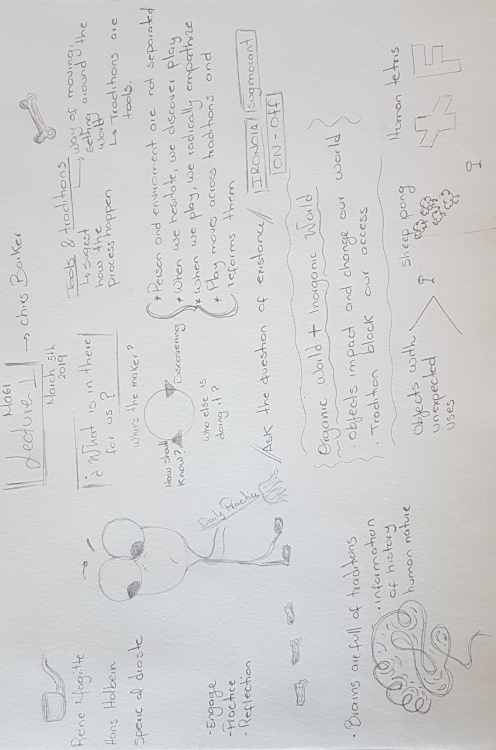 MAGI
Lecture 1 → chris Barker
March 5th
2019
¿What is in there
for us?
Who's the maker?
How should
Know?
Discovering
Who else is
doing it?
Tools & traditions
↳ suject
how the
process happen
way of moving,
getting around the
world
↳ Traditions are
tools.
* Person and enviroment are not separated
* When we hesitate, we discover play
* When we play, we radically empathize
* Play moves across traditions and
reforms them
//Ask the question of existance//
IRONOIA/
ON-OFF
Organic World + Inorganic World
· Objects impact and change our world
· Tradition block our access
Objects with
unexpected
uses
sheep pong
Human tetris
Rene Magitte
Hans Holbein
Daily Practice
-Engage
-Practice
-Reflection
· Brains are full of traditions
· Information
of history
human nature